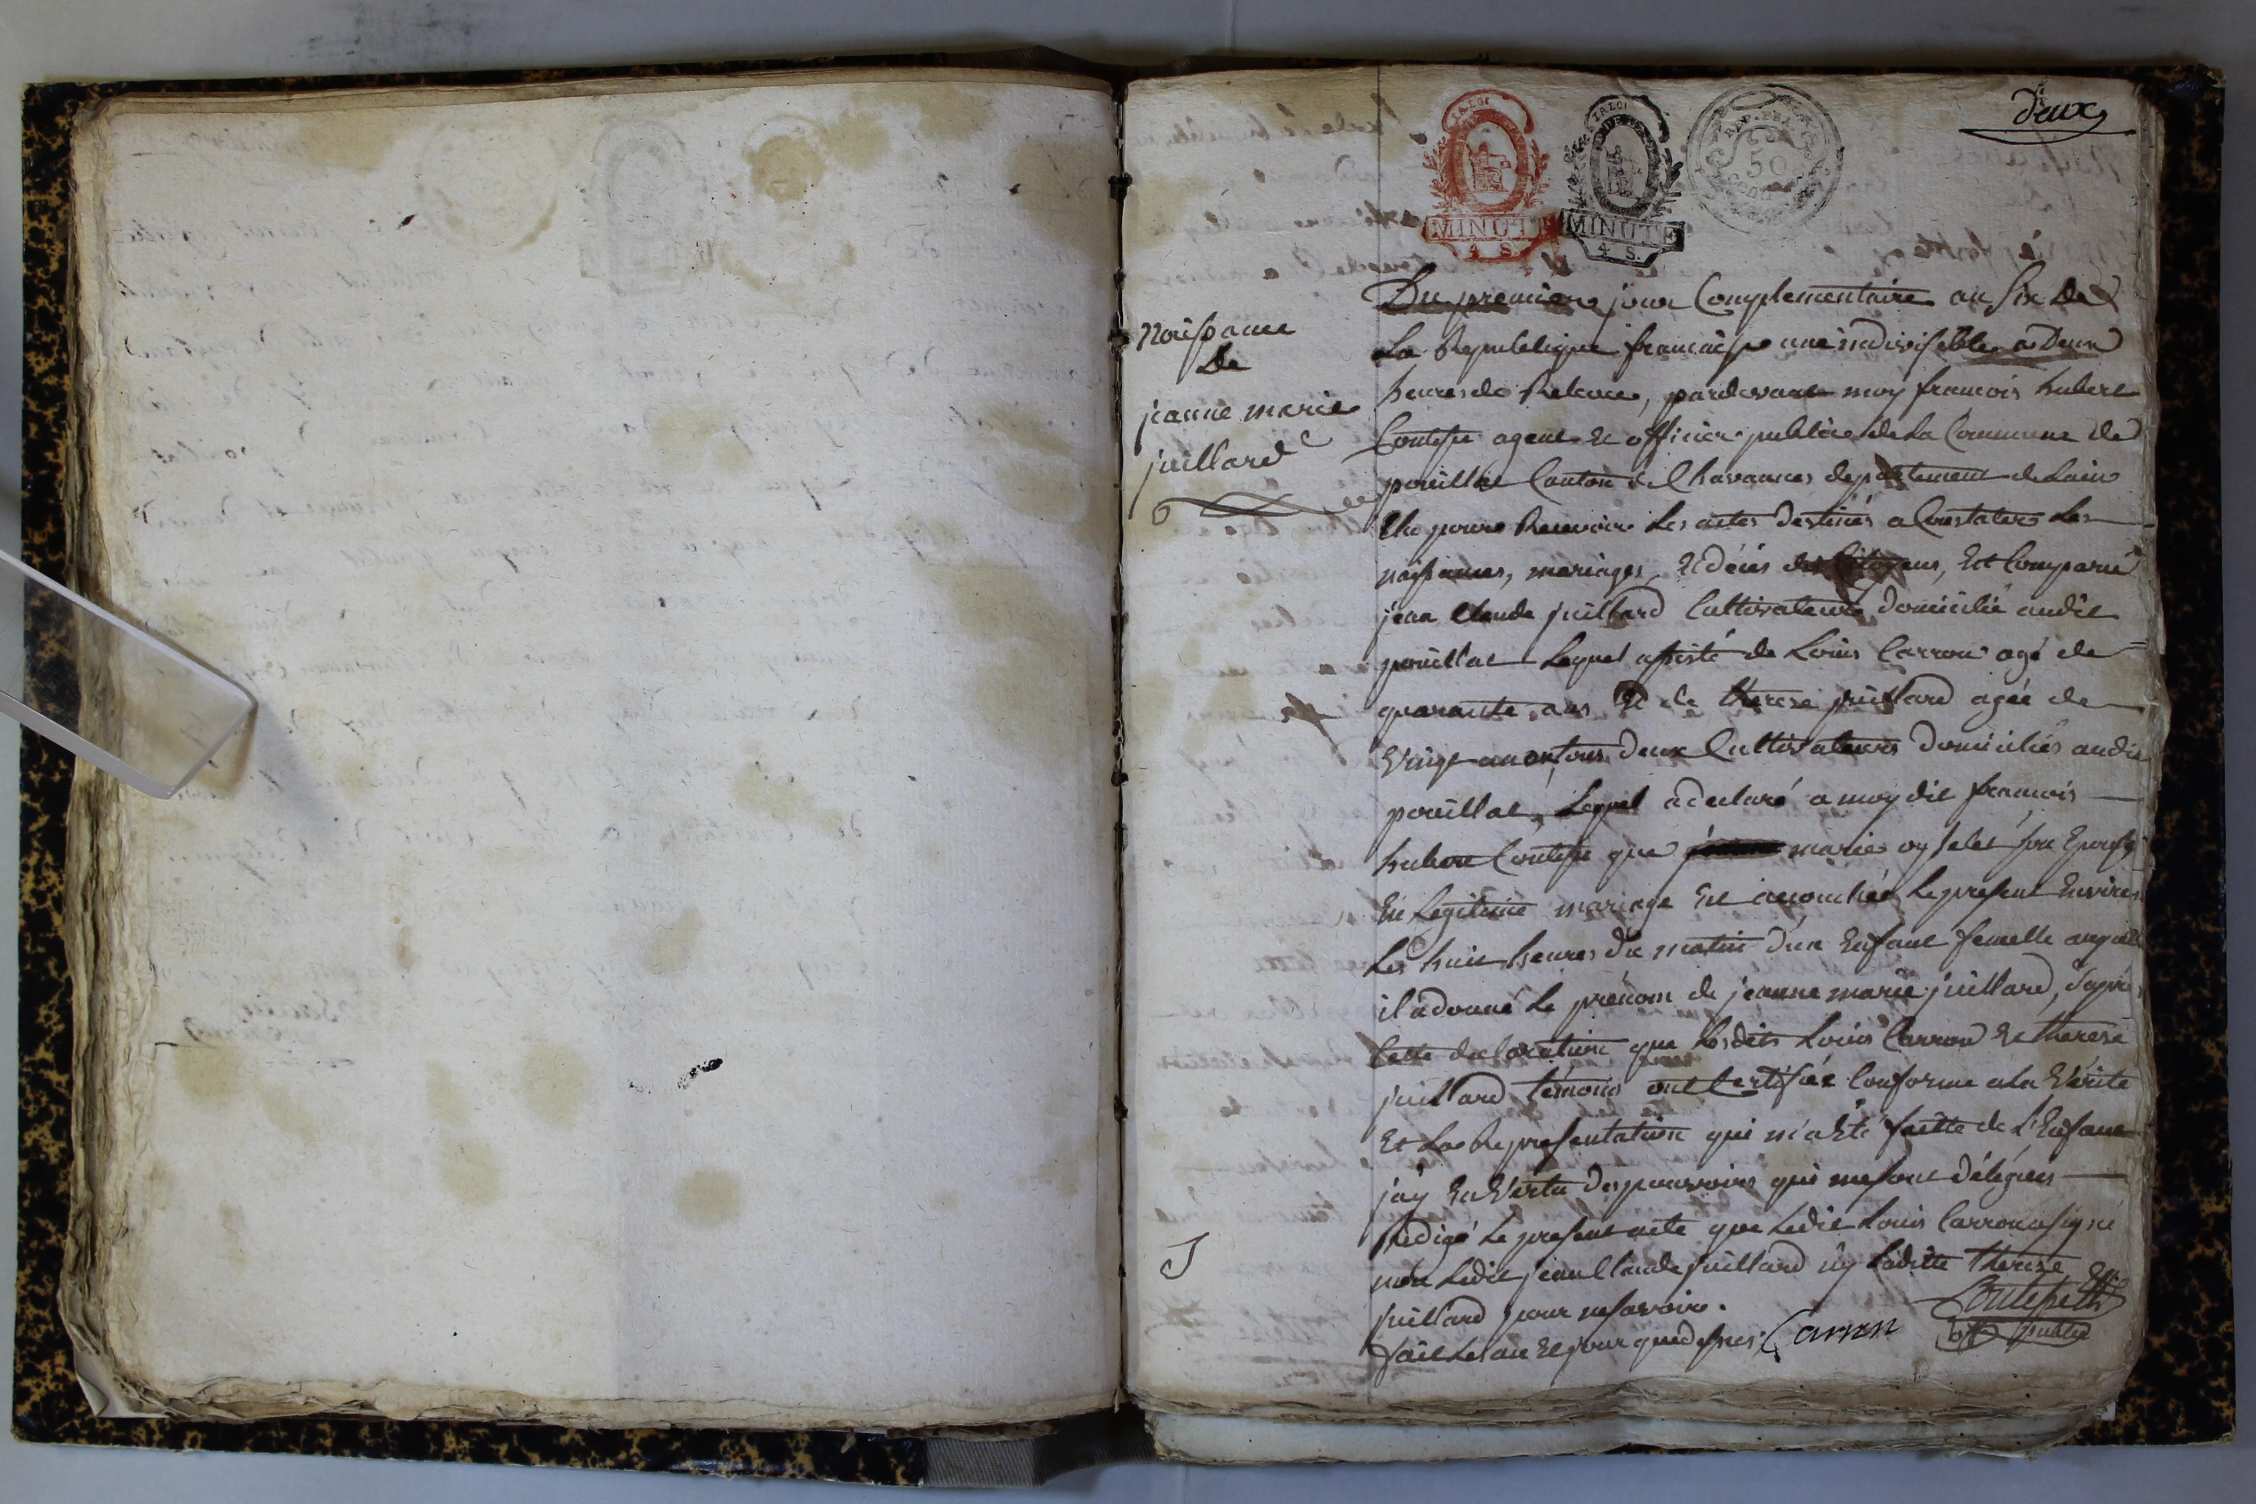 deux
LA LOI
MINUTE
4 S.
LA LOI
MINUTE
4 S.
REP. FRA.
50
CENT
Noissance
De
jeanne marie
juillard
Du premier jour Complementaire an Six De
La Republique francaise une indivisible a Deux
heures de Relevée, pardevant moy francois hubert
Contesse agent et officier public de La Commune de
pouillat Canton de Chavannes departement de Lain
Elu pour Recevoir Les actes destinés a Constater Les
naissances, mariages, et décés des Citoyens, Est Comparu
jean Claude juillard Cultivateur domicilié audit
pouillat Lequel assisté de Louis Carron agé de
quarante ans et de therese juillard agée de
Vingt un ans, tous deux Cultivateurs Domiciliés audit
pouillat, Lequel a declaré a moy dit francois
hubert Contesse que marie oyselet son Epouse
En Legitime mariage Est accouchée Le present Environ
Les huit heures du matin d'un Enfant femelle auquel
il a donné Le prénom de jeanne marie juillard, d'après
Cette declaration que Lesdits Louis Carron et therese
juillard témoins ont Certifiée Conforme a La Vérité
Et La Representation qui m'a Eté faitte de L'Enfant
j'ay En Vertu des pouvoirs qui me sont délégués
Redigé Le present acte que Ledit Louis Carron a signé
non Ledit jean Claude juillard ny Ladite therese
juillard pour ne savoir.
fait Les an et jour que dessus. Carron
Contesse
off public